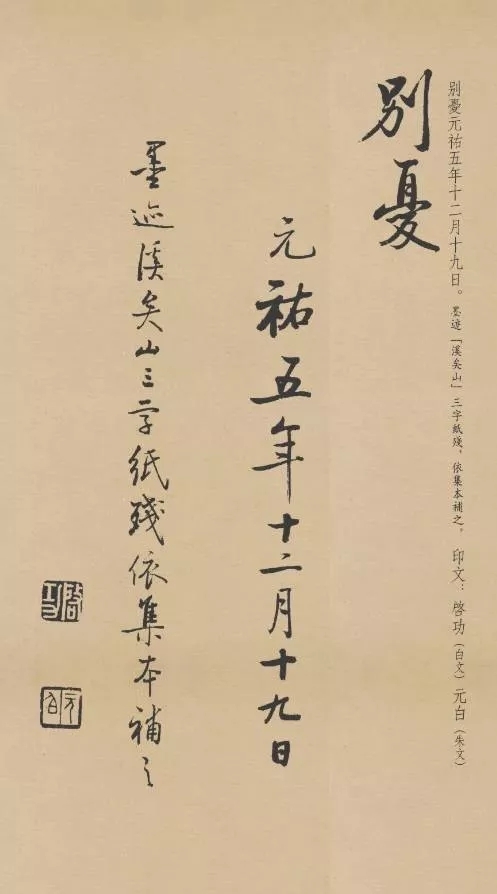 别憂元祐五年十二月十九日。墨迹「溪矣山」三字紙殘,依集本補之。印文:啓功(白文)元白(朱文)
别憂
元祐五年十二月十九日
墨迹溪矣山三字紙殘依集本補之
啓功
元白